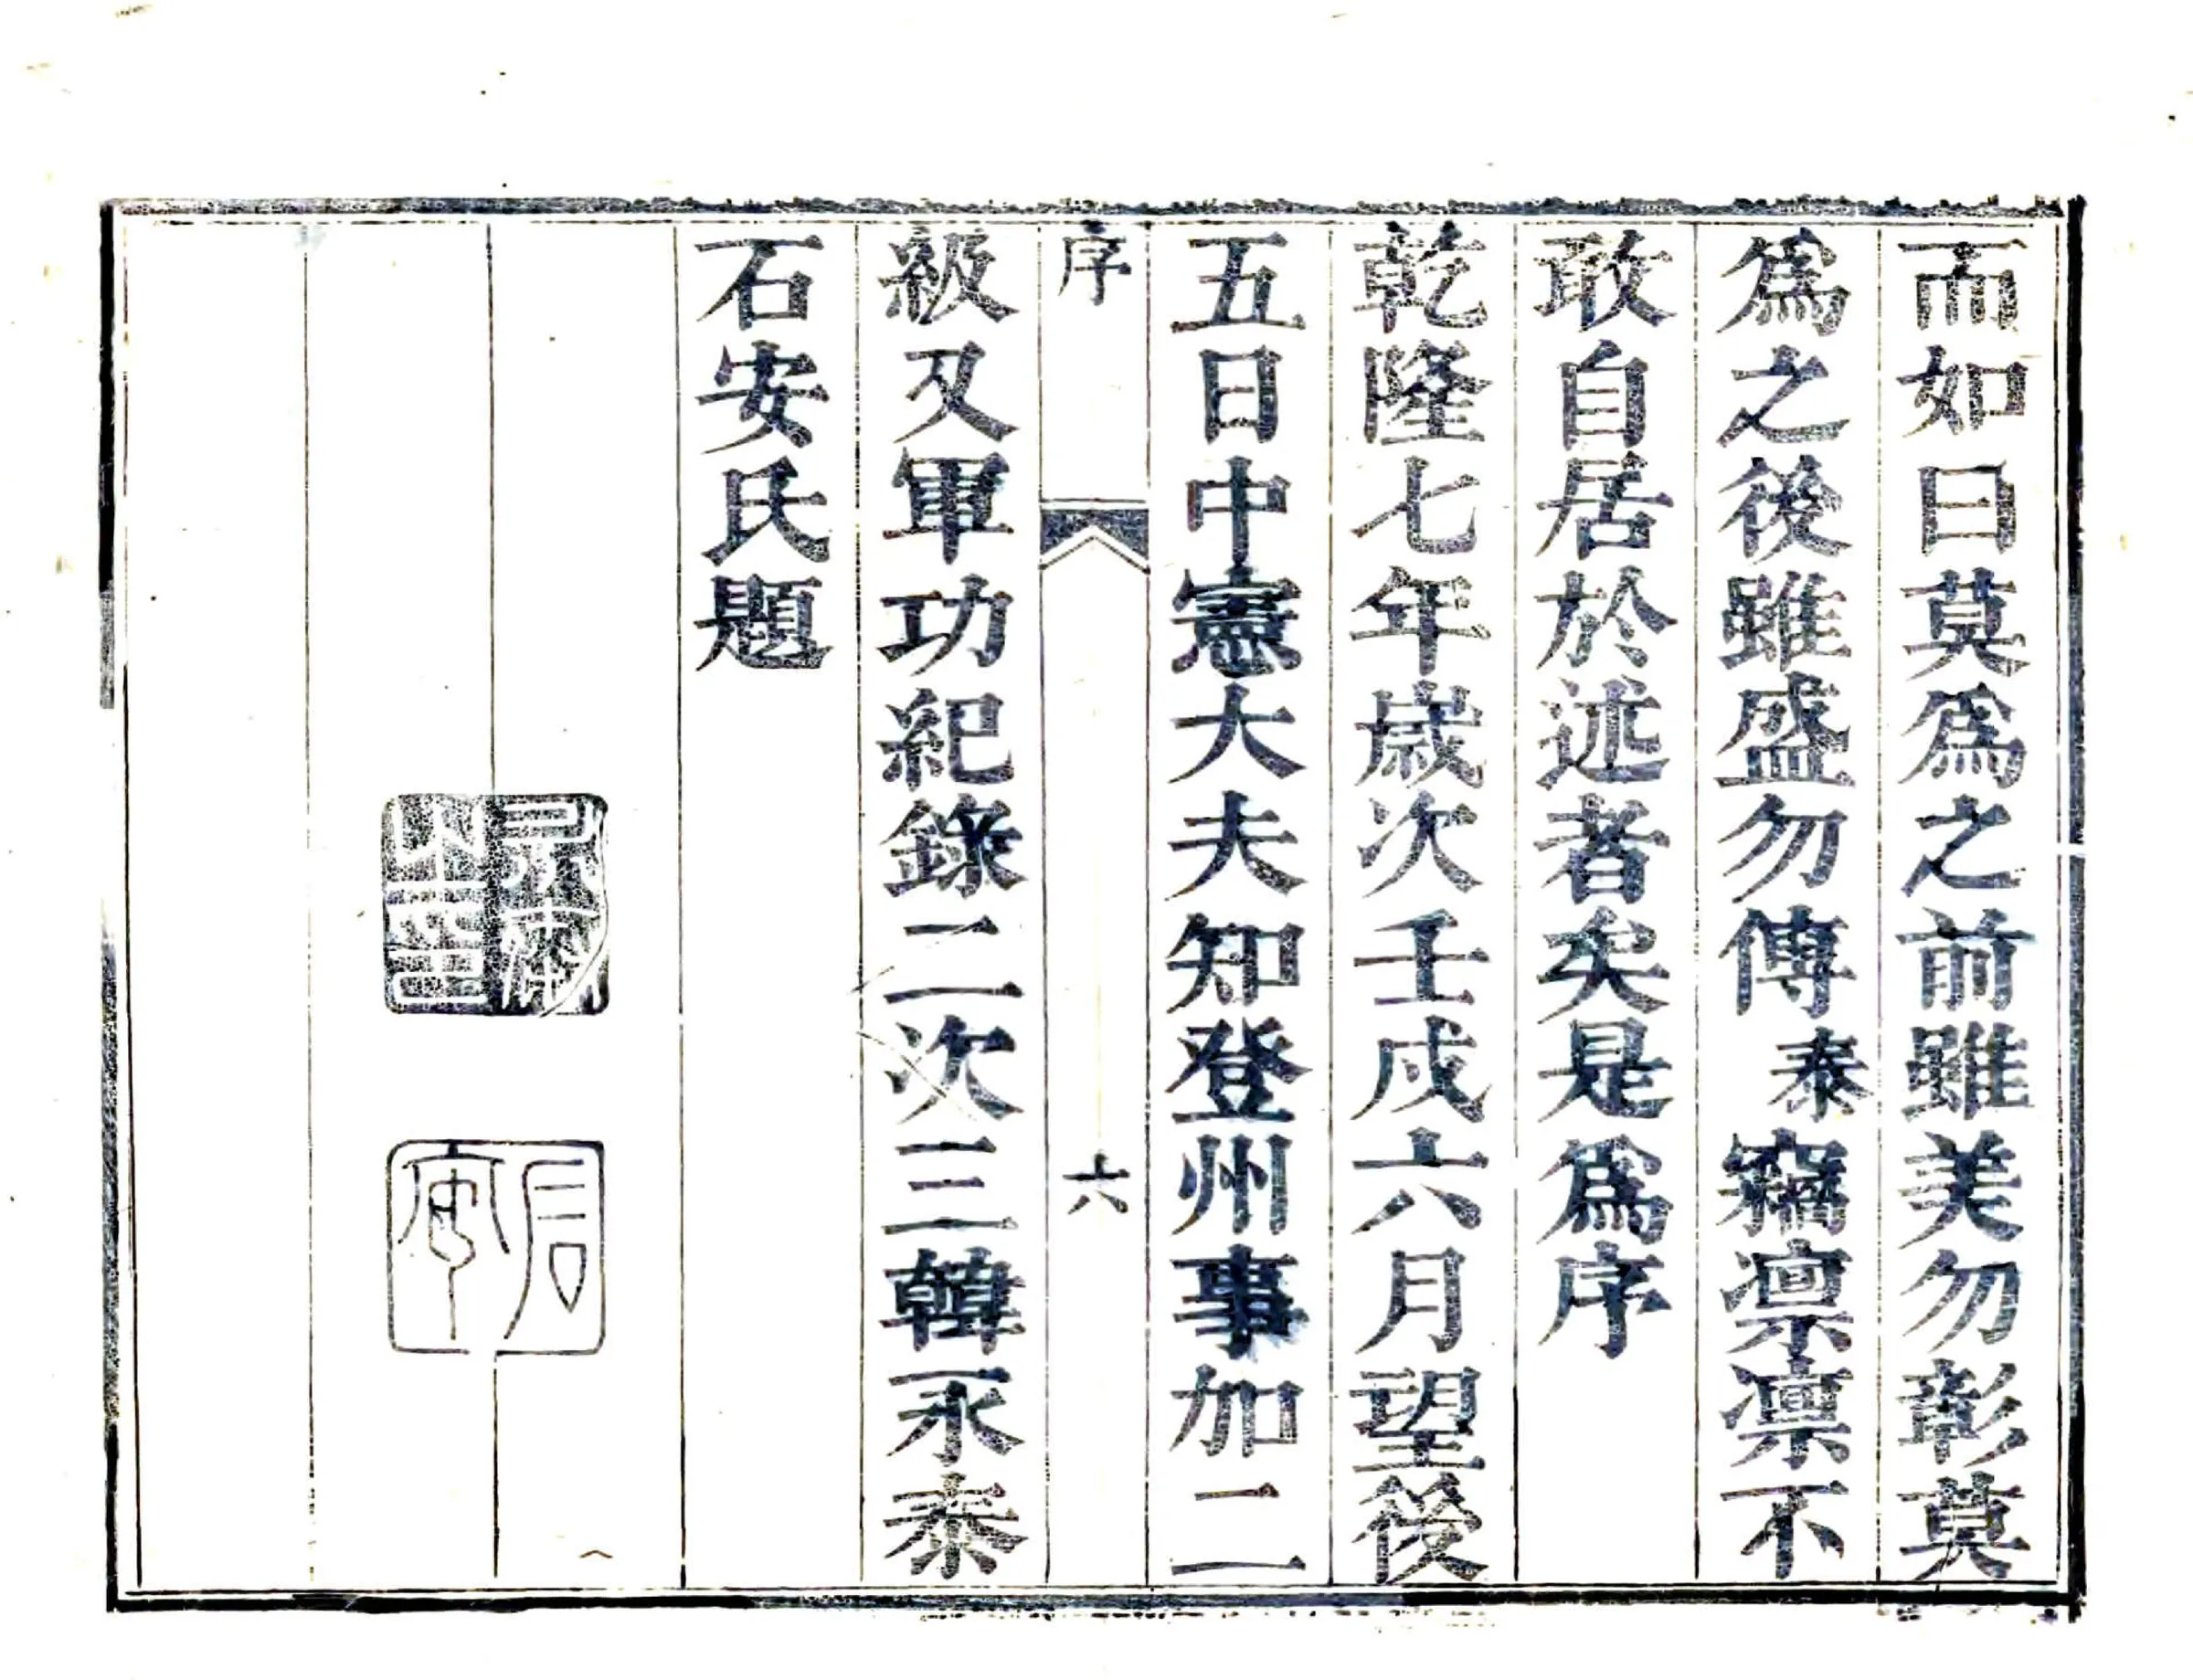 而如曰莫爲之前雖美勿彰莫
爲之後雖盛勿傳泰竊凛凛不
敢自居於述者矣是爲序
乾隆七年歲次壬戌六月望後
五日中憲大夫知登州事加二
序
六
級又軍功紀錄二次三韓永泰
石安氏題